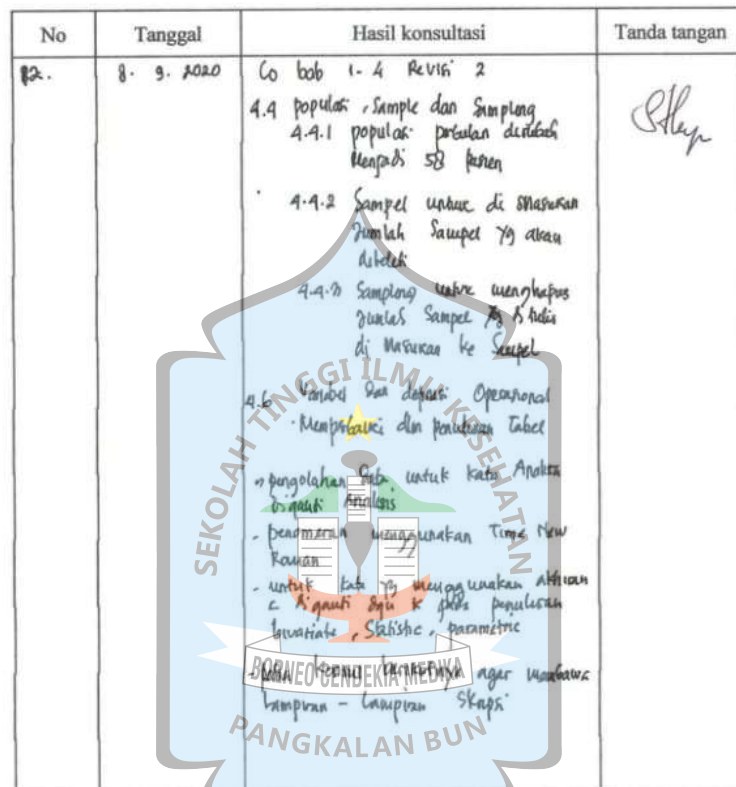 No Tanggal Hasil konsultasi Tanda tangan
12. 8. 9. 2020 Co bab 1-4 Revisi 2
4.4 populasi, Sample dan Sampling
4.4.1 populasi dirubah
Menjadi 58
4.4.2 Sampel untuk di masukan
Jumlah Sampel yg akan
4.4.3 Sampling untuk menghapus
Jumlah Sampel yg
di masukan ke Sampel
4.6 Variabel dan definisi Operasional
Memperbaiki dlm penulisan Tabel
- pengolahan data untuk kata Analisa
diganti Analisis
- penomeran menggunakan Time New
Roman
- untuk kata yg menggunakan akhiran
c diganti dgn k pada penulisan
bivariate, Statistic, parametric
- agar membawa
lampiran - lampiran Skripsi
SEKOLAH TINGGI ILMU KESEHATAN
BORNEO CENDEKIA MEDIKA
PANGKALAN BUN